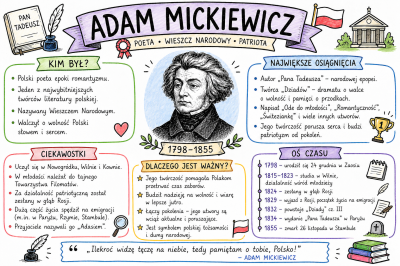 PAN
TADEUSZ
ADAM MICKIEWICZ
POETA • WIESZCZ NARODOWY • PATRIOTA
KIM BYŁ?
• Polski poeta epoki romantyzmu.
• Jeden z najwybitniejszych
twórców literatury polskiej.
• Nazywany Wieszczem Narodowym.
• Walczył o wolność Polski
słowem i sercem.
1798–1855
NAJWIĘKSZE OSIĄGNIĘCIA
• Autor „Pana Tadeusza” – narodowej epopei.
• Twórca „Dziadów” – dramatu o walce
o wolność i pamięci o przodkach.
• Napisał „Odę do młodości”, „Romantyczność”,
„Świteziankę” i wiele innych utworów.
• Jego twórczość porusza serca i budzi
patriotyzm od pokoleń.
CIEKAWOSTKI
Uczył się w Nowogródku, Wilnie i Kownie.
W młodości należał do tajnego
Towarzystwa Filomatów.
Za działalność patriotyczną został
zesłany w głąb Rosji.
Dużą część życia spędził na emigracji
(m.in. w Paryżu, Rzymie, Stambule).
Przyjaciele nazywali go „Adasiem”.
DLACZEGO JEST WAŻNY?
Jego twórczość pomagała Polakom
przetrwać czas zaborów.
Budził nadzieję na wolność i wiarę
w lepsze jutro.
Łączy pokolenia – jego utwory są
wciąż aktualne i poruszające.
Jest symbolem polskiej tożsamości
i dumy narodowej.
OŚ CZASU
1798 – urodził się 24 grudnia w Zaosiu
1815–1823 – studia w Wilnie,
działalność wśród młodzieży
1824 – zesłany w głąb Rosji
1829 – wyjazd z Rosji, początek życia na emigracji
1832 – powstają „Dziady” cz. III
1834 – wydanie „Pana Tadeusza” w Paryżu
1855 – zmarł 26 listopada w Stambule
“ „Ilekroć widzę tęczę na niebie, tedy pamiętam o tobie, Polsko!”
– ADAM MICKIEWICZ